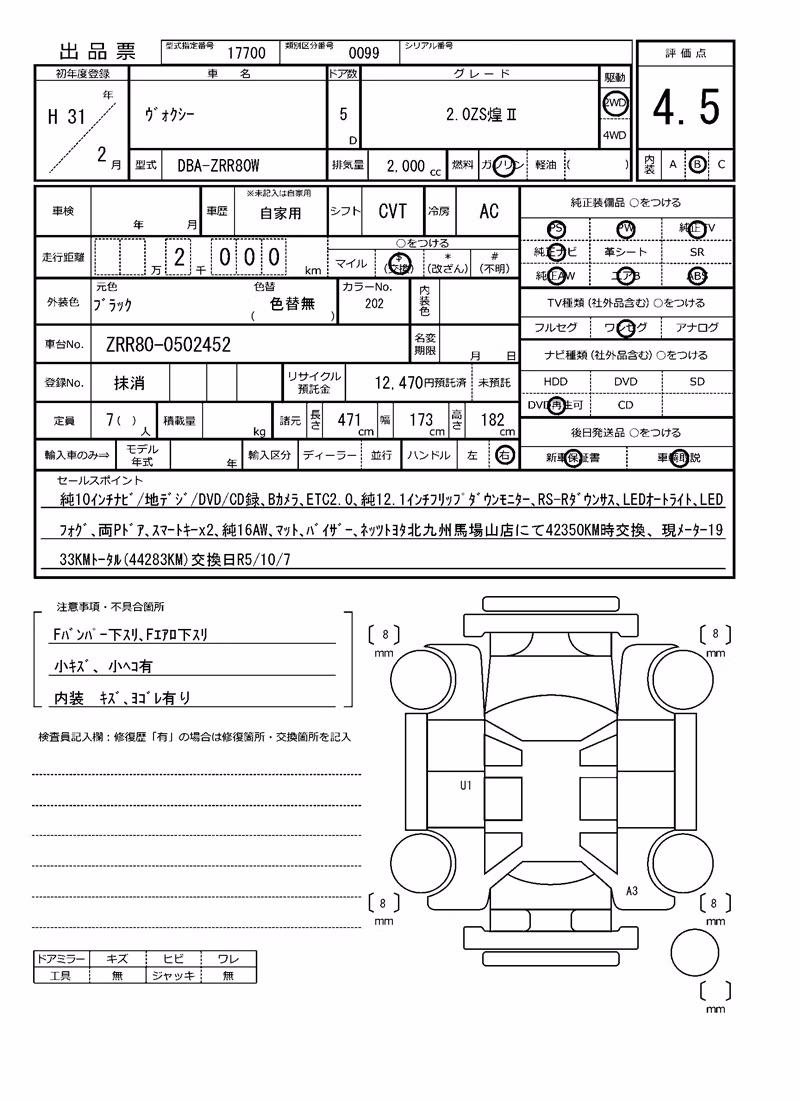 出品票 型式指定番号 17700 類別区分番号 0099 シリアル番号
評価点
4.5
内装 A B C
初年度登録 車名 ドア数 グレード 駆動
H 31 年 2 月 ヴォクシー 5 D 2.0ZS煌Ⅱ 2WD
4WD
型式 DBA-ZRR80W 排気量 2,000 cc 燃料 ガソリン 軽油 ( )
車検 年 月 車歴 ※未記入は自家用 自家用 シフト CVT 冷房 AC
走行距離 万 2 千 0 0 0 km ○をつける
マイル $(交換) *(改ざん) #(不明)
外装色 元色 ブラック 色替 ( 色替無 ) カラーNo. 202 内装色
車台No. ZRR80-0502452 名変期限 月 日
登録No. 抹消 リサイクル預託金 12,470円預託済 未預託
定員 7( ) 人 積載量 kg 諸元 長さ 471 cm 幅 173 cm 高さ 182 cm
輸入車のみ⇒ モデル年式 年 輸入区分 ディーラー 並行 ハンドル 左 右
純正装備品 ○をつける
PS PW 純正TV
純正ナビ 革シート SR
純正AW エアB ABS
TV種類(社外品含む)○をつける
フルセグ ワンセグ アナログ
ナビ種類(社外品含む)○をつける
HDD DVD SD
DVD再生可 CD
後日発送品 ○をつける
新車保証書 車輌取説
セールスポイント
純10インチナビ/地デジ/DVD/CD録、Bカメラ、ETC2.0、純12.1インチフリップダウンモニター、RS-Rダウンサス、LEDオートライト、LED
フォグ、両Pドア、スマートキーx2、純16AW、マット、バイザー、ネッツトヨタ北九州馬場山店にて42350KM時交換、現メーター19
33KMトータル(44283KM)交換日R5/10/7
注意事項・不具合箇所
Fバンパー下スリ、Fエアロ下スリ
小キズ、小ヘコ有
内装 キズ、ヨゴレ有り
検査員記入欄:修復歴「有」の場合は修復箇所・交換箇所を記入
8 mm
8 mm
U1
A3
8 mm
8 mm
mm
ドアミラー キズ ヒビ ワレ
工具 無 ジャッキ 無